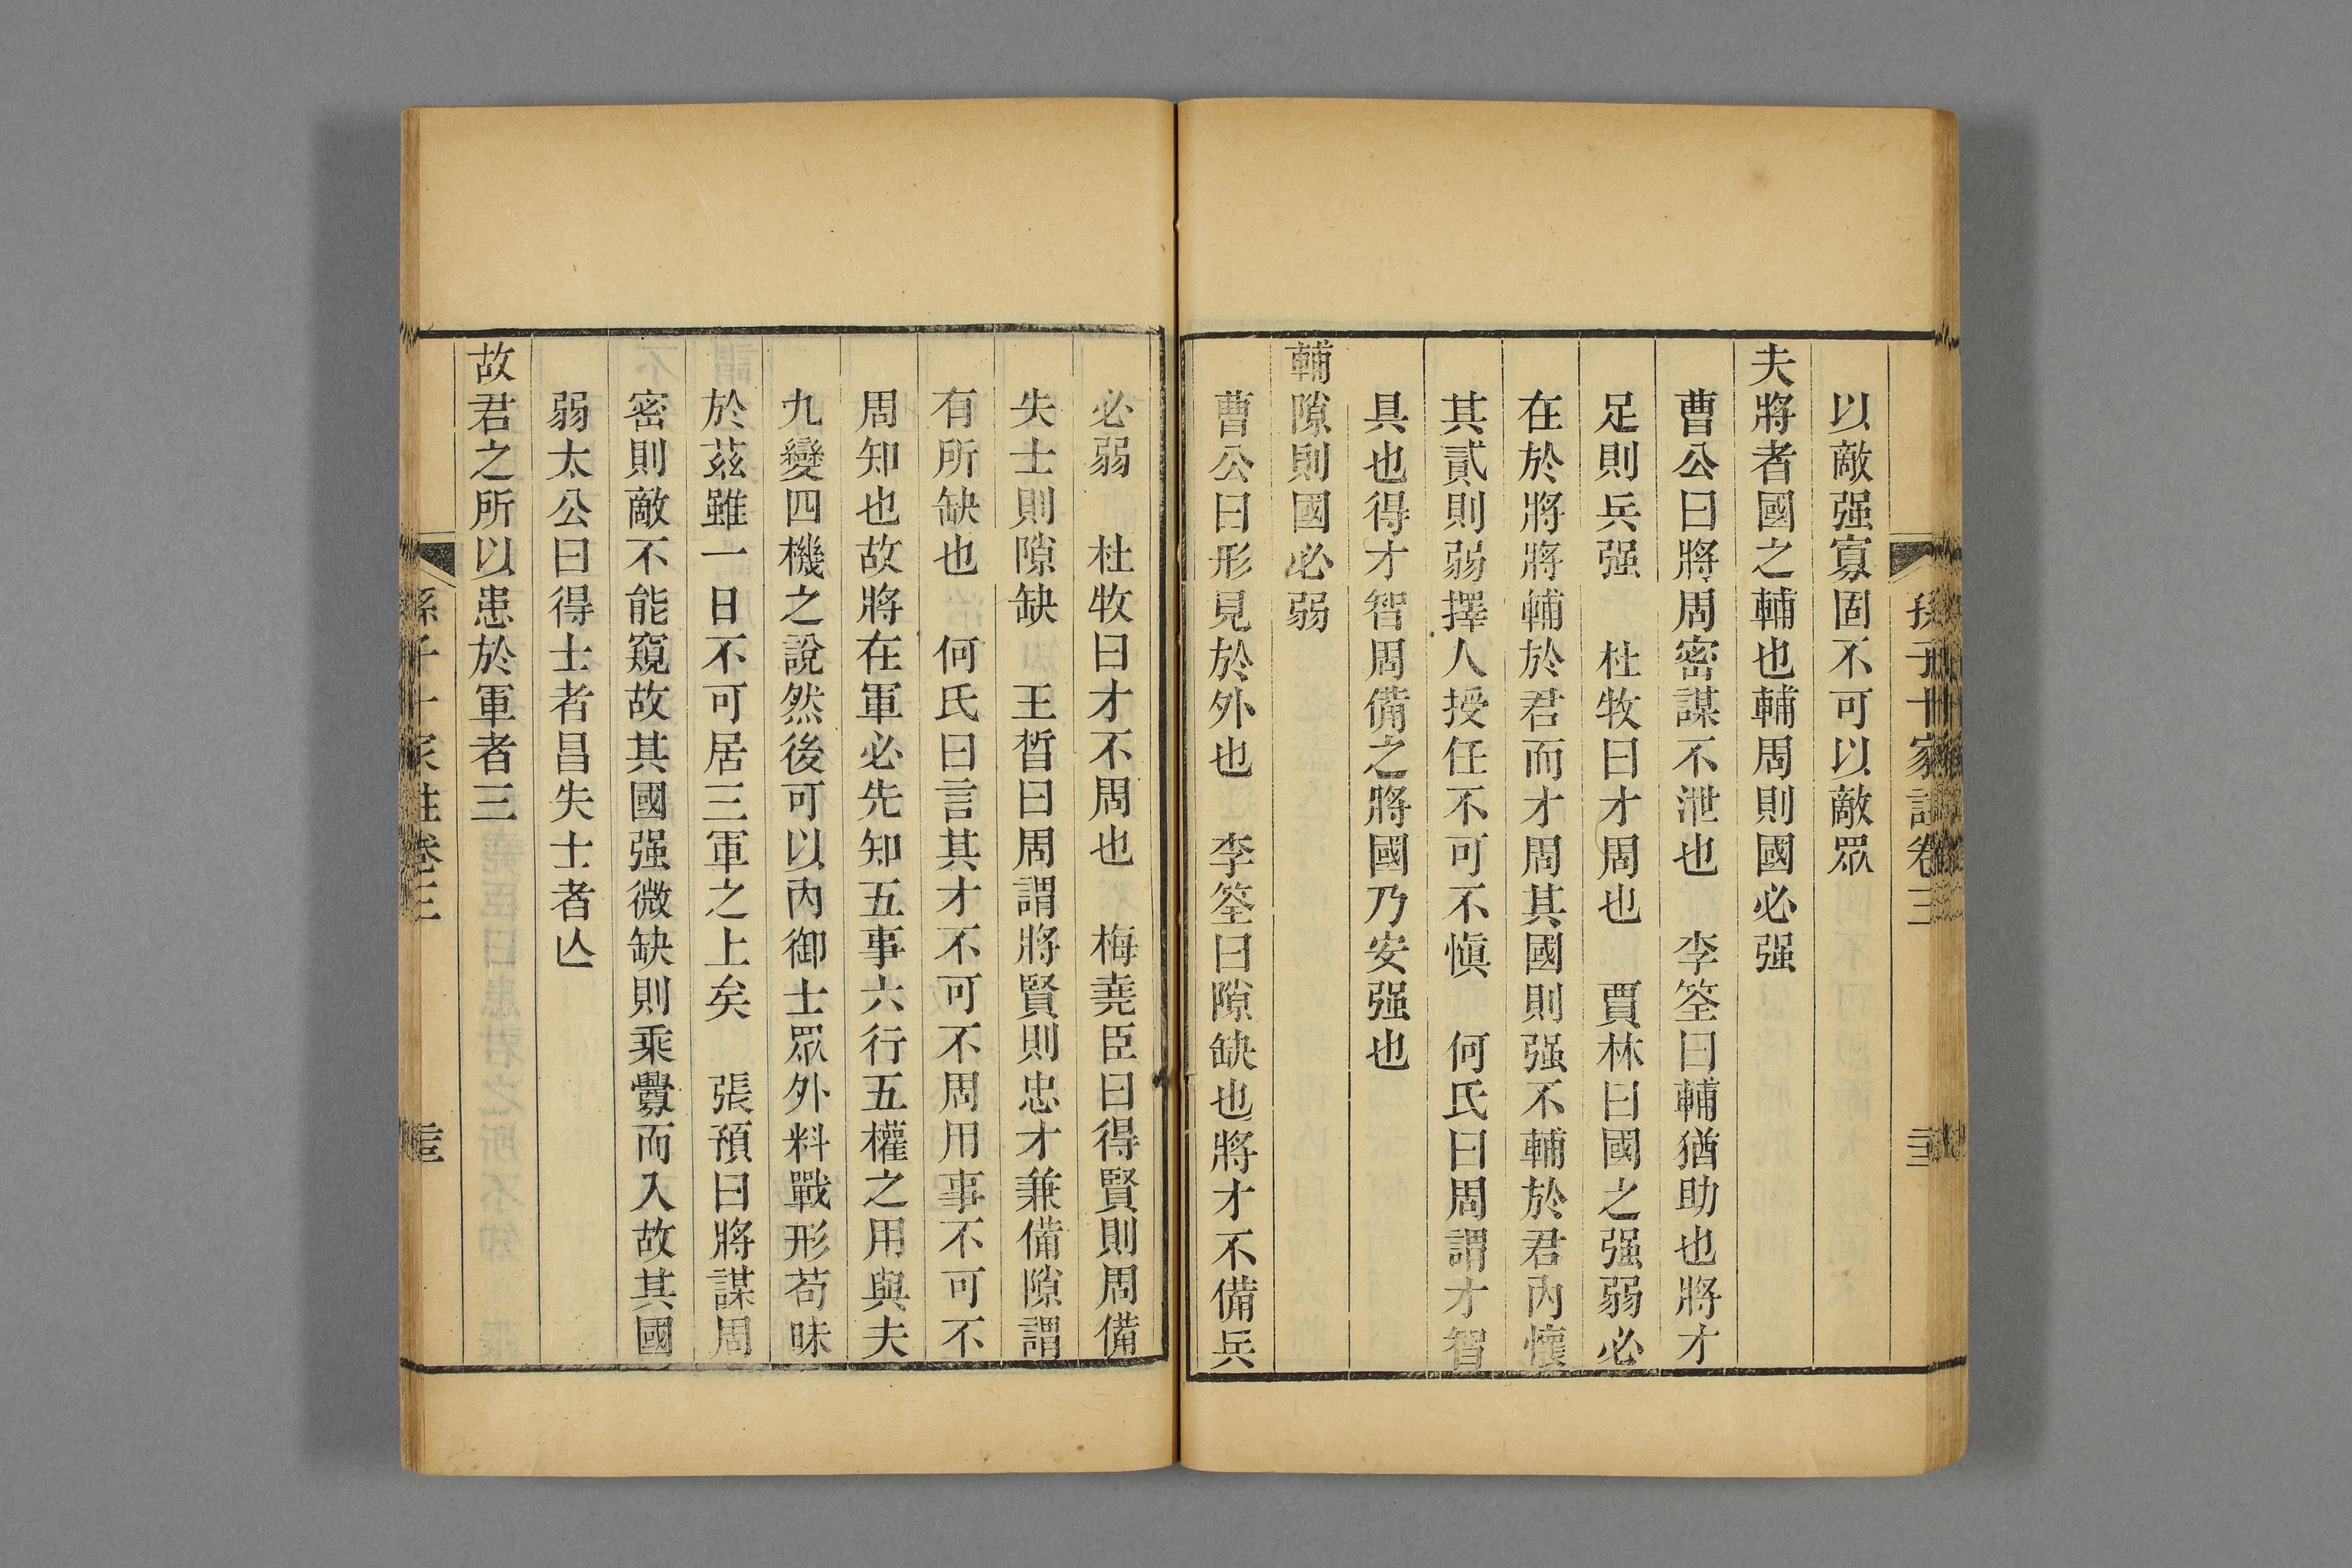 孫子十家註卷三
以敵强寡固不可以敵眾
夫將者國之輔也輔周則國必强
曹公曰將周密謀不泄也　李筌曰輔猶助也將才
足則兵强　杜牧曰才周也　賈林曰國之强弱必
在於將將輔於君而才周其國則强不輔於君內懷
其貳則弱擇人授任不可不愼　何氏曰周謂才智
具也得才智周備之將國乃安强也
輔隙則國必弱
曹公曰形見於外也　李筌曰隙缺也將才不備兵
必弱　杜牧曰才不周也　梅堯臣曰得賢則周備
失士則隙缺　王晳曰周謂將賢則忠才兼備隙謂
有所缺也　何氏曰言其才不可不周用事不可不
周知也故將在軍必先知五事六行五權之用與夫
九變四機之說然後可以內御士眾外料戰形苟昧
於茲雖一日不可居三軍之上矣　張預曰將謀周
密則敵不能窺故其國强微缺則乘釁而入故其國
弱太公曰得士者昌失士者亾
故君之所以患於軍者三
孫子十家註卷三